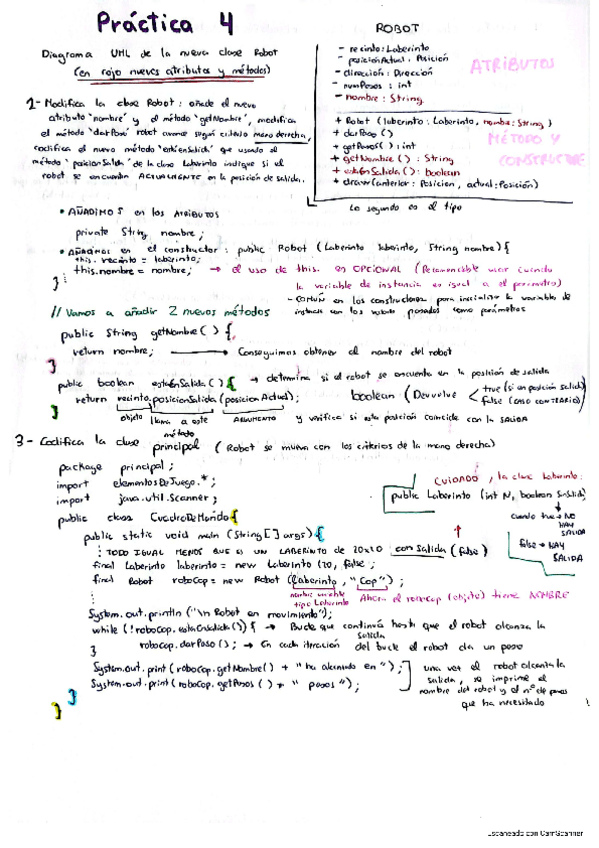 Práctica 4
Diagrama UML de la nueva clase Robot
(en rojo nuevos atributos y métodos)
ROBOT
- recinto: Laberinto
- posicionActual: Posición
- dirección: Dirección
- numPasos: int
- nombre: String
ATRIBUTOS
+ Robot (laberinto: Laberinto, nombre: String)
+ darPaso ()
+ getPasos (): int
+ getNombre (): String
+ estáEnSalida (): boolean
+ draw (anterior: Posicion, actual: Posición)
MÉTODO Y
CONSTRUCTOR
Lo segundo es el tipo
2- Modifica la clase Robot: añade el nuevo
atributo 'nombre' y el método 'getNombre', modifica
el método 'darPaso' robot avance según criterio mano derecha,
codifica el nuevo método 'estáEnSalida' que usando el
método 'posicionSalida' de la clase Laberinto indique si el
robot se encuentra ACTUALMENTE en la posición de salida.
• AÑADIMOS en los ATRIBUTOS
private String nombre;
• AÑADIMOS en el constructor: public Robot (Laberinto laberinto, String nombre) {
this.recinto = laberinto;
this.nombre = nombre; → el uso de this. es OPCIONAL (Recomendable usar cuando
la variable de instancia es igual a el parámetro)
}
- COMÚN en los constructores para inicializar la variables de
instancia con los valores pasados como parámetros
// Vamos a añadir 2 nuevos métodos
public String getNombre () {
return nombre; → Conseguimos obtener el nombre del robot
}
public boolean estáEnSalida () { → determina si el robot se encuentra en la posición de salida
return recinto.posicionSalida (posicionActual); boolean (Devuelve < true (si en posición salida)
false (caso contrario)
}
objeto llama a este método ARGUMENTO y verifica si esta posición coincide con la SALIDA
3- Codifica la clase principal (Robot se mueva con los criterios de la mano derecha)
package principal;
import elementosDeJuego.*;
import java.util.Scanner;
CUIDADO, la clase Laberinto:
public Laberinto (int N, boolean SinSalida)
cuando true → NO
HAY
SALIDA
false → HAY
SALIDA
public class CuadroDeMando {
public static void main (String [] args) {
: TODO IGUAL MENOS QUE ES UN LABERINTO de 10x10 con salida (false)
final Laberinto laberinto = new Laberinto (10, false;
final Robot roboCop = new Robot (laberinto, "Cop");
nombre variable
tipo Laberinto
Ahora el roboCop (objeto) tiene NOMBRE
System.out.println ("\n Robot en movimiento");
while (!roboCop.estáEnSalida()) { → Bucle que continúa hasta que el robot alcanza la
salida
roboCop.darPaso (); → En cada iteración del bucle el robot da un paso
}
System.out.print (roboCop.getNombre() + "ha alcanzado en ");
System.out.print (roboCop.getPasos () + " pasos ");
una vez el robot alcanza la
salida, se imprime el
nombre del robot y el nº de pasos
que ha necesitado
}
}
Escaneado con CamScanner